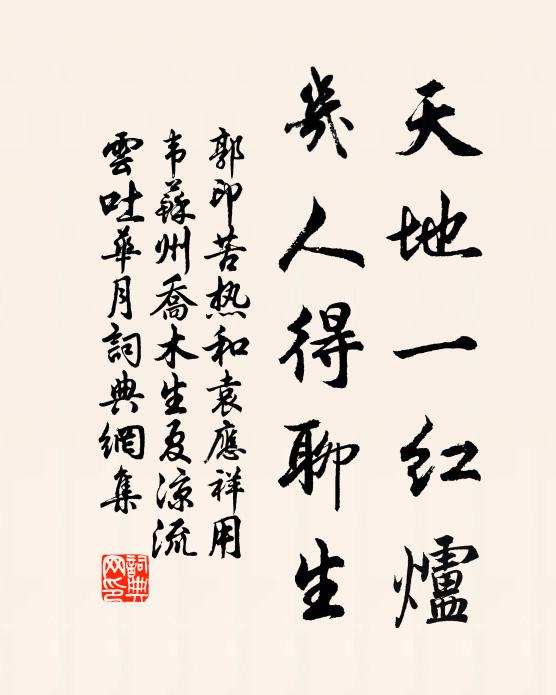 天地一红爐
幾人得聊生
郭印苦热和袁應祥用
韦蘇州喬木生夏凉流
雲吐華月詞典網集
詞典网印